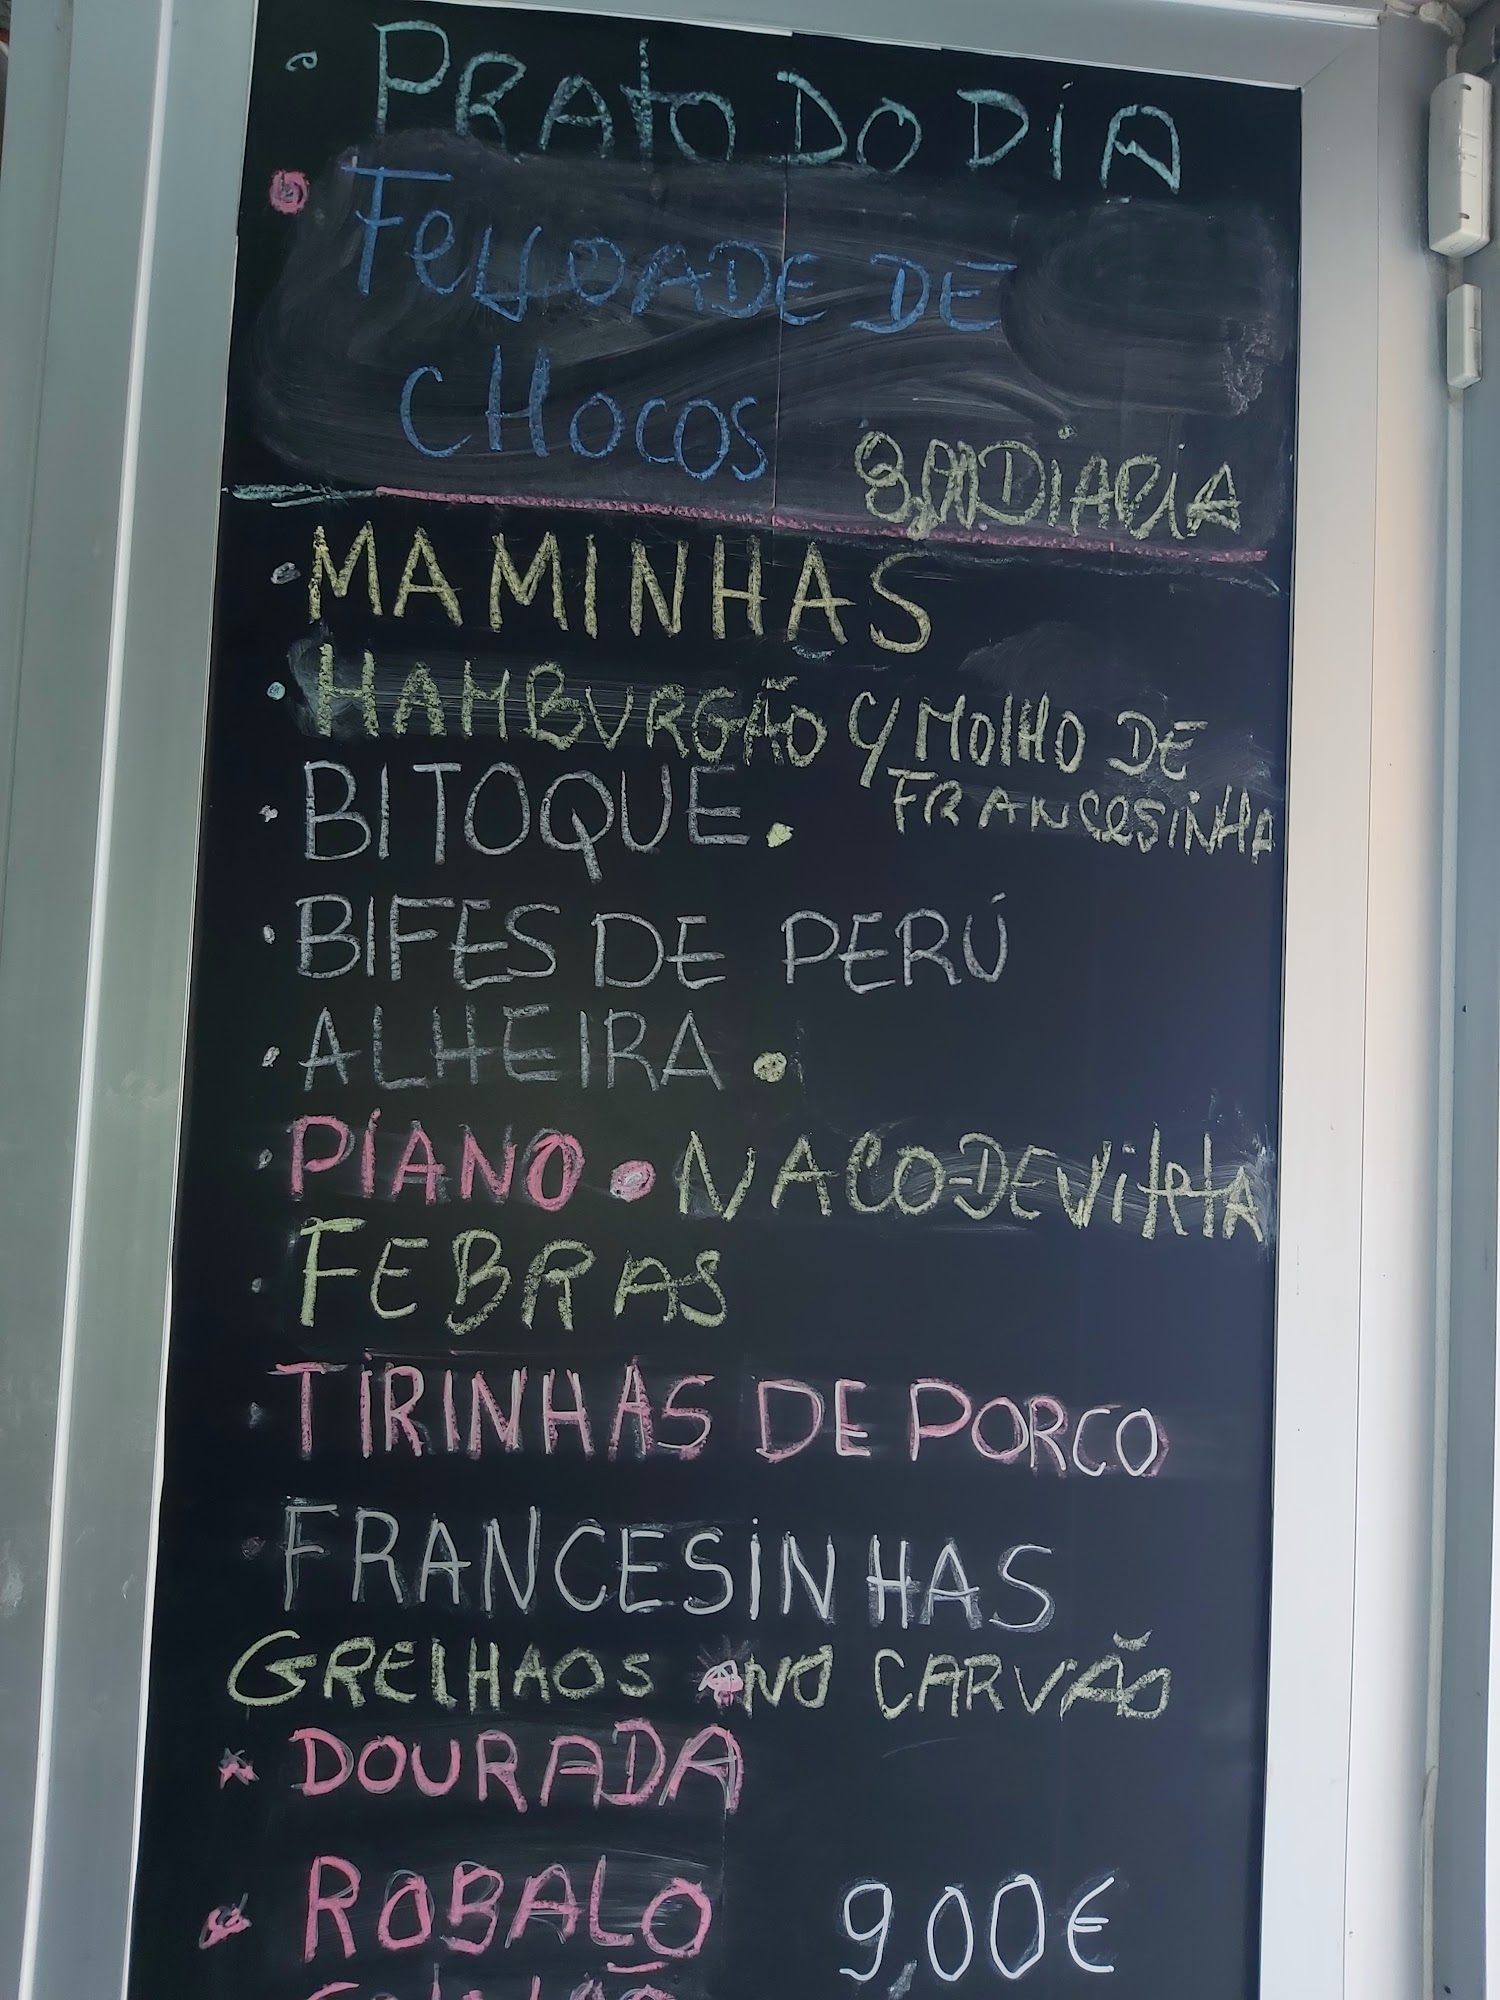 PRATO DO DIA
FEIJOADE DE
CHOCOS
8,00 DIARIA
MAMINHAS
HAMBURGÃO C/ MOLHO DE
FRANCESINHA
BITOQUE
BIFES DE PERÚ
ALHEIRA
PIANO • NACO-DE VITELA
FEBRAS
TIRINHAS DE PORCO
FRANCESINHAS
GRELHAOS NO CARVÃO
DOURADA
ROBALO 9,00€